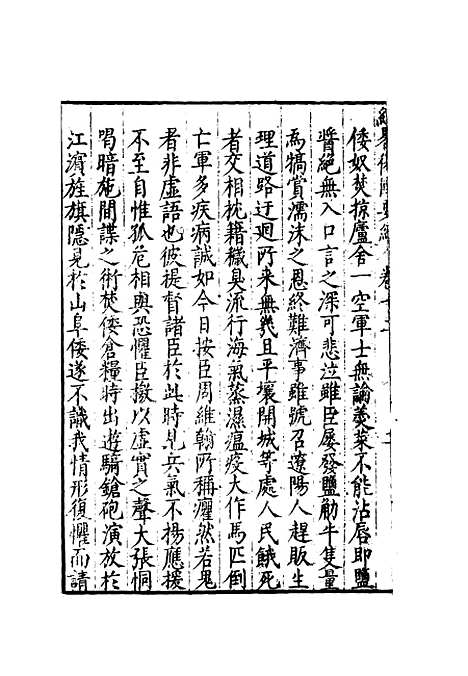 經畧復國要編 卷十三
倭奴焚掠廬舍一空軍士無論羹菜不能沾唇即鹽
醬絕無入口言之深可悲泣雖臣屡發鹽觔牛隻量
為犒賞濡沫之恩終難濟事雖號召遼陽人趕販生
理道路迂迴所来無幾且平壤開城等處人民餓死
者交相枕籍穢臭流行海氣蒸濕瘟疫大作馬匹倒
亡軍多疾病誠如今日按臣周維翰所稱癯然若鬼
者非虛語也彼提督諸臣於此時見兵氣不揚應援
不至自惟孤危相與恐懼臣撥以虛實之聲大張恫
喝暗施間諜之術焚倭倉糧時出遊騎鎗砲演放於
江濵旌旗隱見於山阜倭遂不識我情形復懼而請